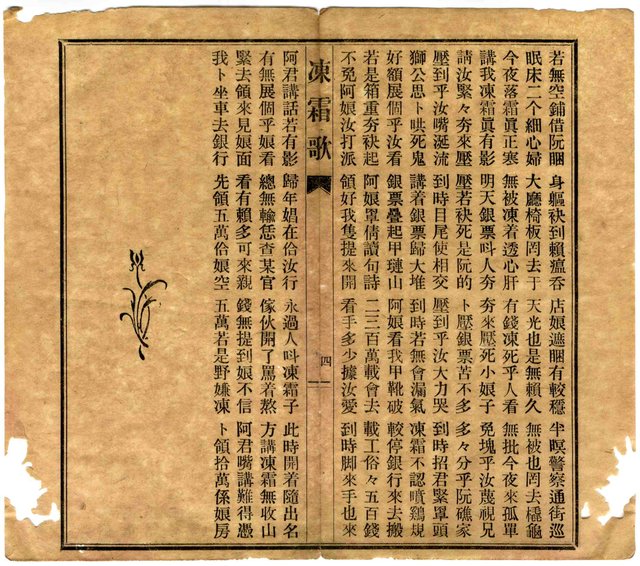 若無空鋪借阮睏 身軀袂到賴瘟吞 店娘遮睏有較穩 半暝警察通街巡
眠床二个細心婦 大廳椅板罔去于 天光也是無賴久 無被也罔去橇龜
今夜落霜眞正塞 無被凍着透心肝 有錢凍死乎人看 無批今夜來孤單
講我凍霜眞有影 明天銀票叫人夯 夯來壓死小娘子 免塊乎汝蔑視兄
請汝緊々夯來壓 壓若袂死是阮的 卜壓銀票苦不多 多々分乎阮礁家
壓到乎汝嘴涎流 到時目尾使相交 壓到乎汝大力哭 到時招君緊罩頭
獅公思卜哄死鬼 講着銀票歸大堆 到時若無會漏氣 凍霜不認噴鷄規
好額展個乎汝看 銀票疊起甲璉山 阿娘看我甲靴破 較停銀行來去搬
若是箱重夯袂起 阿娘罩倩讀句詩 二三百萬載會去 載工俗々五百錢
不免阿娘汝打派 領好我隻提來開 看手多少據汝愛 到時脚來手也來
凍霜歌 四
阿君講話若有影 歸年娼在佮汝行 永過人叫凍霜子 此時開着隨出名
有無展個乎娘看 總無輸恁查某官 傢伙開了罵着熬 方講凍霜無收山
緊去領來見娘面 看有賴多可來親 錢無提到娘不信 阿君嘴講難得憑
我卜坐車去銀行 先領五萬俗娘空 五萬若是野嫌凍 卜領拾萬係娘房